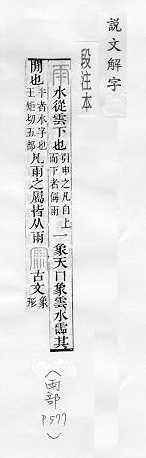 說文解字
段注本
雨 水從雲下也引申之凡自上而下者偁雨一象天冂象雲水霝其
閒也丨者水字也王矩切五部凡雨之屬皆从雨 古文象形
（雨部
P.577）